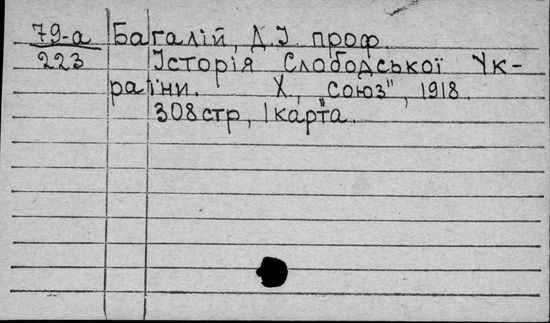 79-а Багалій, Д.І. проф.
223 Історія Слободської Ук-
раїни. Х., "Союз", 1918.
308 стр, 1 карта.